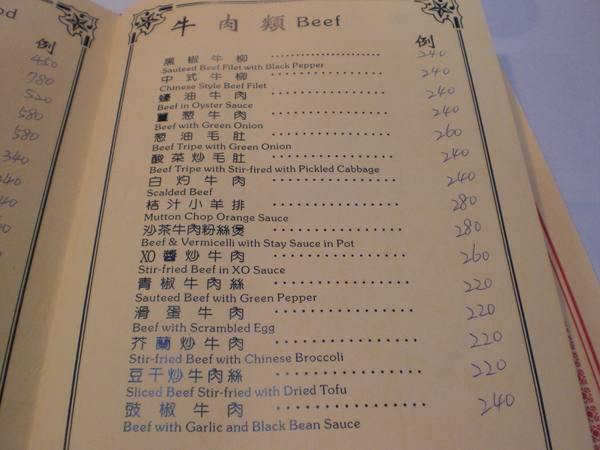 od
例
450
780
520
580
580
340
牛肉類 Beef
例
黑椒牛柳 240
Sauteed Beef Filet with Black Pepper
中式牛柳 240
Chinese Style Beef Filet
蠔油牛肉 240
Beef in Oyster Sauce
薑葱牛肉 240
Beef with Green Onion
葱油毛肚 260
Beef Tripe with Green Onion
酸菜炒毛肚 240
Beef Tripe with Stir-fired with Pickled Cabbage
白灼牛肉 240
Scalded Beef
桔汁小羊排 280
Mutton Chop Orange Sauce
沙茶牛肉粉絲煲 280
Beef & Vermicelli with Stay Sauce in Pot
XO醬炒牛肉 260
Stir-fried Beef in XO Sauce
青椒牛肉絲 220
Sauteed Beef with Green Pepper
滑蛋牛肉 220
Beef with Scrambled Egg
芥蘭炒牛肉 220
Stir-fried Beef with Chinese Broccoli
豆干炒牛肉絲 220
Sliced Beef Stir-fried with Dried Tofu
豉椒牛肉 240
Beef with Garlic and Black Bean Sauce